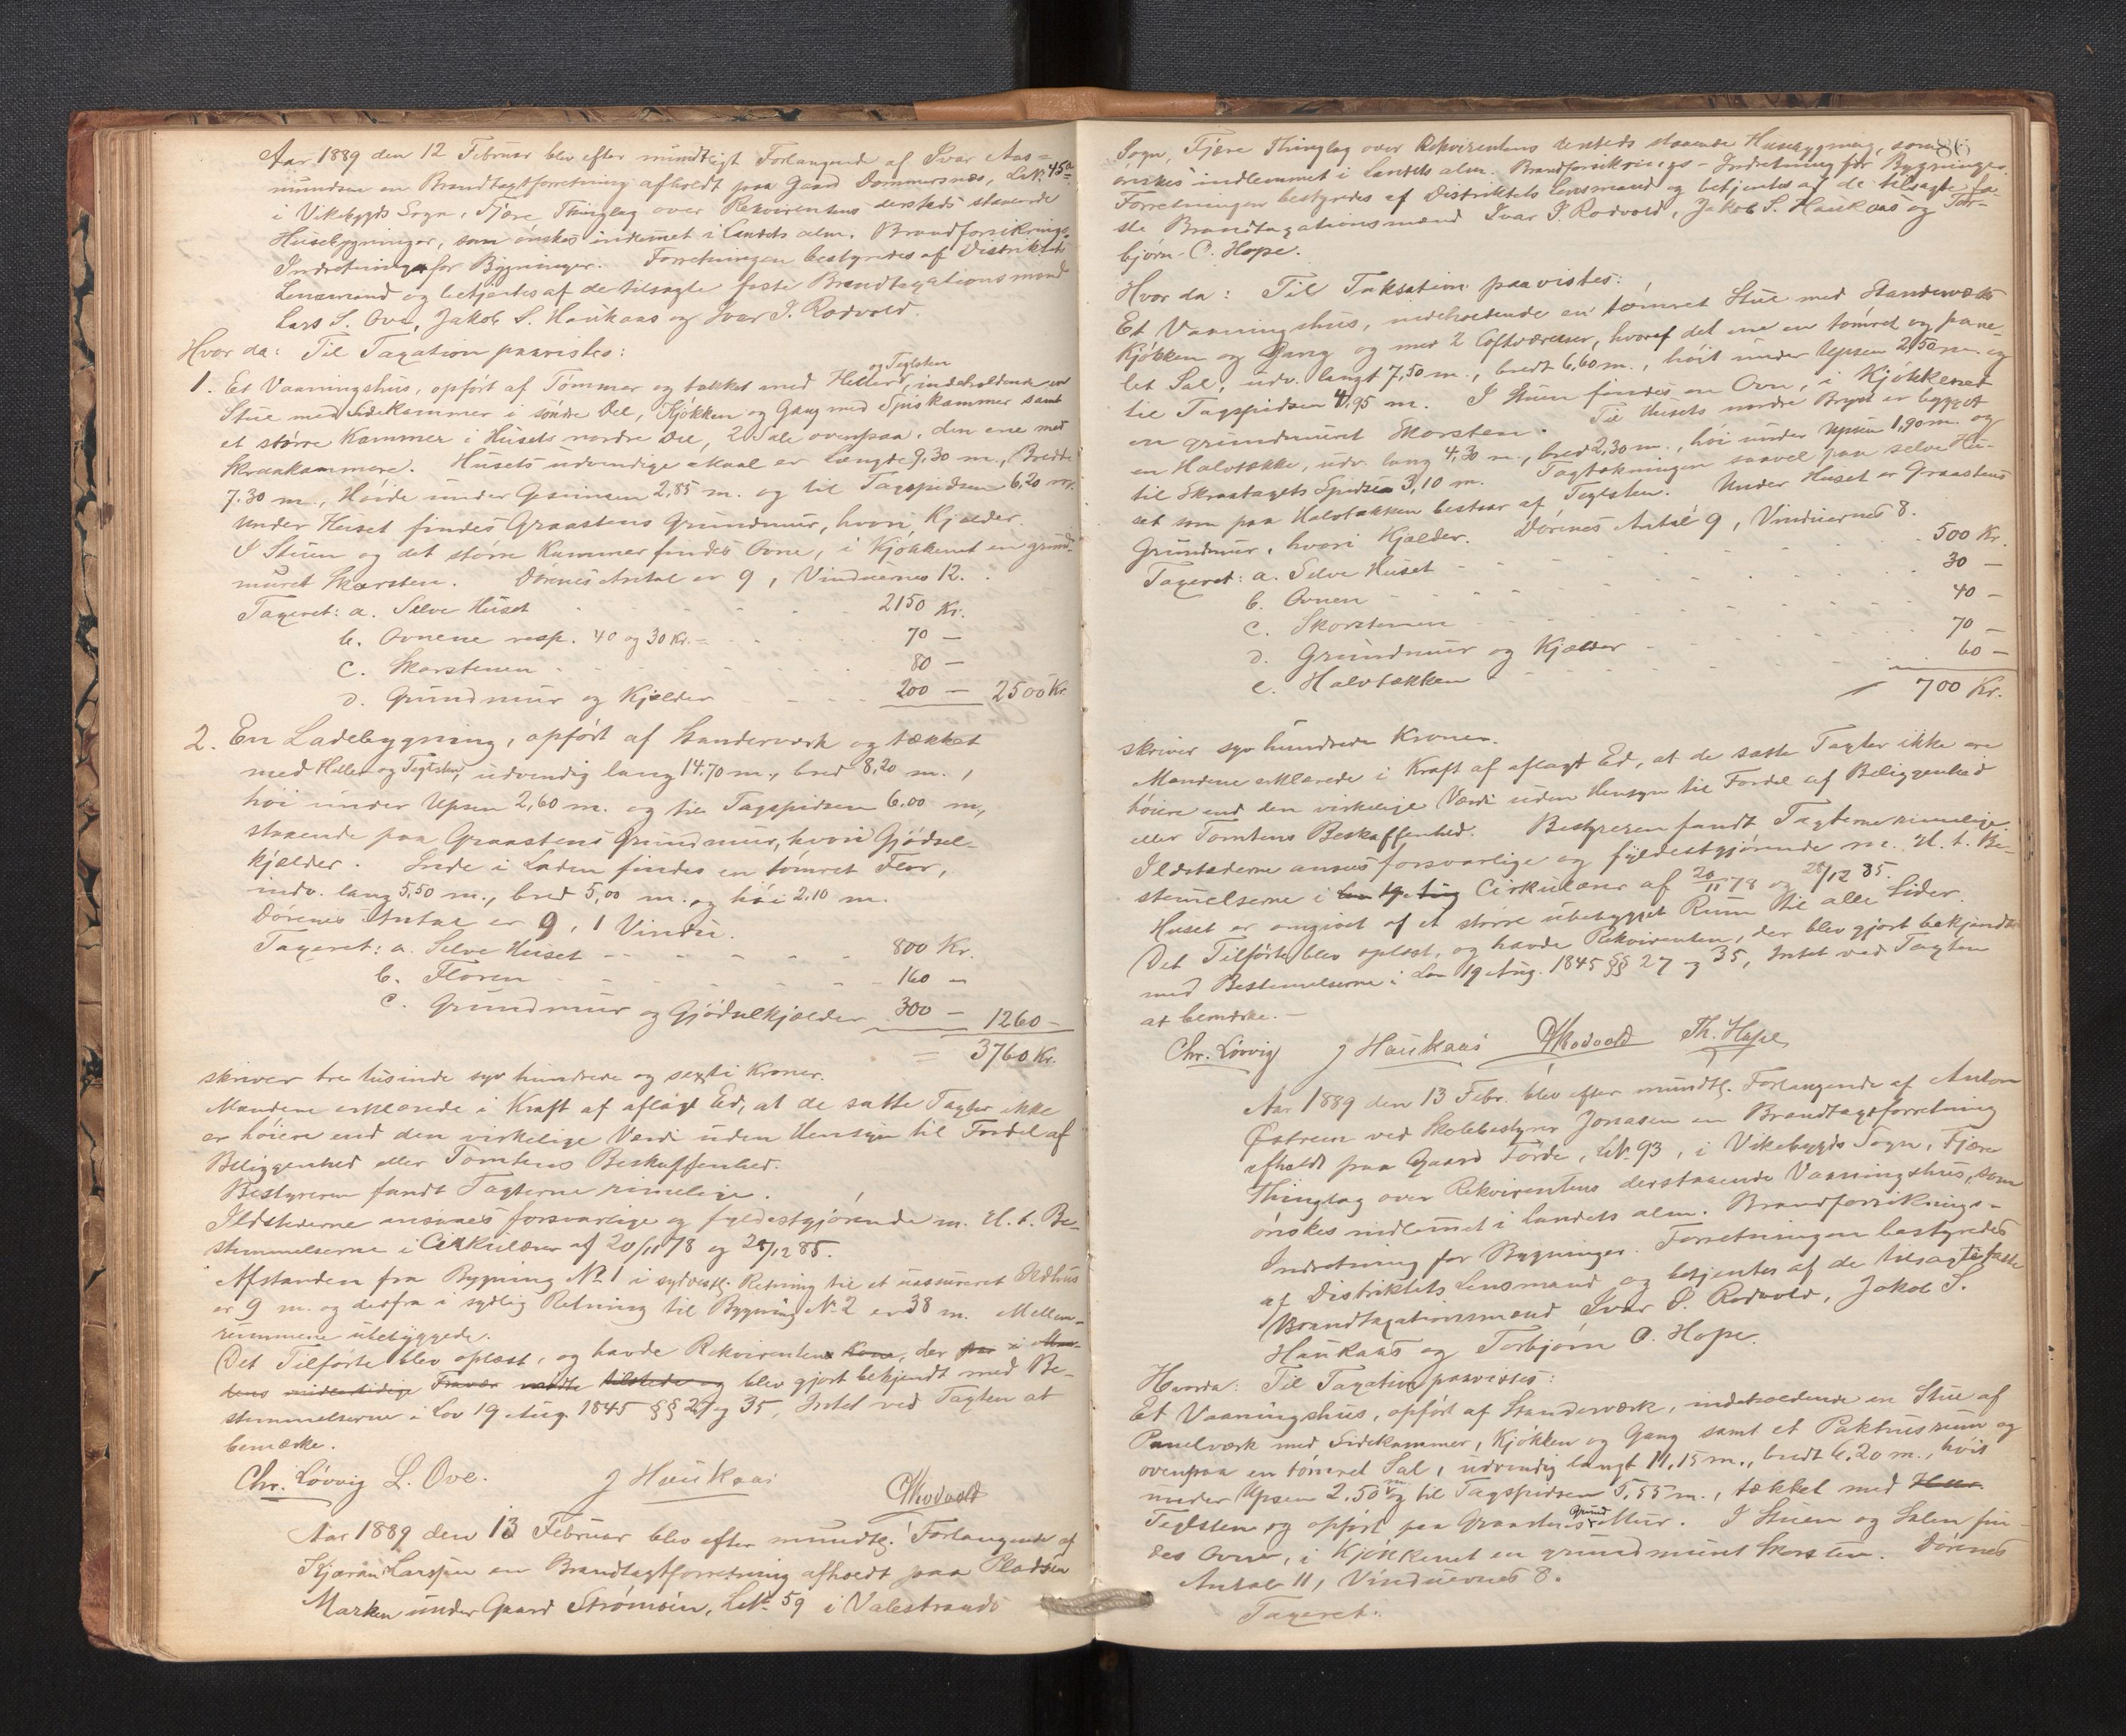 Aar 1889 den 12 Februar blev efter mundtligt Forlangende af Ivar Aas-
mundsen en Brandtagtforretning afholdt paa Gaard Dommersnæs, LNr. 45a
i Vikebygds Sogn, Fjære Thinglag over Rekvirentens dersteds staaende
Husebygninger, som ønskes indlemmet i Landets alm. Brandforsikrings-
Indretning for Bygninger. Forretningen bestyredes af Distriktets
Lensmand og betjentes af de tilsagte faste Brandtaxationsmænd
Lars S. Ove, Jakob S. Haukaas og Ivar I. Rodvold.
Hvor da: Til Taxation paavistes:
1. Et Vaaningshus, opført af Tømmer og takket med Heller og Teglsten, indeholdende en
Stue med Sidekammer i søndre Del, Kjøkken og Gang med Spiskammer samt
et større Kammer i Husets nordre Del, 2 Sale ovenpaa, den ene med
Skraakammere. Husets udvendige Maal er Længde 9,30 m., Bredde
7.30 m., Høide under Gesimsen 2,85 m. og til Tagspidsen 6,20 m.
Under Huset findes Graastens Grundmur, hvori Kjælder.
I Stuen og det større Kammer findes Ovne, i Kjøkkenet en grund-
muret Skorsten. Dørenes Antal er 9, Vinduernes 12.
Taxeret: a. Selve Huset 2150 Kr.
b. Ovnene resp. 40 og 30 Kr. = 70 —
c. Skorstenen 80 —
d. Grundmur og Kjælder 200 — 2500 Kr
2. En Ladebygning, opført af Standerværk og tækket
med Heller og Teglsten, udvendig lang 14.70 m., bred 8,20 m.,
høi under Upsen 2,60 m. og til Tagspidsen 6.00 m.,
staaende paa Graastens Grundmur, hvori Gjødsel-
kjælder. Inde i Laden findes en tømret Flor,
indv. lang 5,50 m., bred 5,00 m. og høi 2,10 m.
Dørenes Antal er 9, 1 Vindu.
Taxeret: a. Selve Huset 800 Kr.
b. Floren 160 —
c. Grundmur og Gjødselkjælder 300 — 1260 —
= 3760 Kr.
skriver tre tusinde syv hundrede og sexti Kroner.
Mændene erklærede i Kraft af aflagt Ed, at de satte Taxter ikke
er høiere end den virkelige Værdi uden Hensyn til Fordel af
Beliggenhed eller Tomtens Beskaffenhed.
Bestyreren fandt Taxterne rimelige.
Ildstederne ansaaes forsvarlige og fyldestgjørende m. H. t. Be-
stemmelserne i Cirkulærer af 20/11 78 og 28/12 85.
Afstanden fra Bygning No 1 i sydvestl. Retning til et uassureret Ildhus
er 9 m. og derfra i sydlig Retning til Bygning No 2 er 38 m. Mellem-
rummene ubebyggede.
Det Tilførte blev oplæst, og havde Rekvirentens Kone, der paa i Man-
dens midlertidige Fravær mødte tilstede og blev gjort bekjendt med Be-
stemmelserne i Lov 19 Aug. 1845 §§ 27 og 35, Intet ved Taxten at
bemærke.
Chr. Løvvig L. Ove. J Haukaas I I Rodvold
Aar 1889 den 13 Februar blev efter mundtl. Forlangende af
Kjæran Larssen en Brandtagtforretning afholdt paa Pladsen
Marken under Gaard Strømsen, LNr. 59 i Valestrands
86
Sogn, Fjære Thinglag over Rekvirentens dersteds staaende Husebygning, som
ønskes indlemmet i Landets alm. Brandforsikrings-Indretning for Bygninger.
Forretningen bestyredes af Distriktets Lensmand og betjentes af de tilsagte fa-
ste Brandtaxationsmænd Ivar I. Rodvold, Jakob S. Haukaas og Tor-
bjørn C. Hope.
Hvor da: Til Taksation paavistes:
Et Vaaningshus, indeholdende en tømret Stue med Standerværks
Kjøkken og Gang og med 2 Loftværelser, hvoraf det ene en tømret og pane-
let Sal, udv. langt 7,50 m., bredt 6,60 m., høit under Upsen 2,50 m. og
til Tagspidsen 4,95 m. I Stuen findes en Ovn, i Kjøkkenet
en grundmuret Skorsten. Til Husets nordre Bryst er bygget
en Halvtække, udv. lang 4,30 m., bred 2,30 m., høi under Upsen 1,90 m. og
til Skraatagets Spidse 3,10 m. Tagtækningen saavel paa selve Hu-
set som paa Halvtækken bestaar af Teglsten. Under Huset er Graastens
Grundmur, hvori Kjælder. Dørenes Antal 9, Vinduernes 8.
Taxeret: a. Selve Huset 500 Kr.
b. Ovnen 30 —
c. Skorstenen 40 —
d. Grundmur og Kjælder 70 —
e. Halvtækken 60 —
700 Kr.
skriver syv hundrede Kroner.
Mændene erklærede i Kraft af aflagt Ed, at de satte Taxter ikke ere
høiere end den virkelige Værdi uden Hensyn til Fordel af Beliggenhed
eller Tomtens Beskaffenhed. Bestyreren fandt Taxterne rimelige.
Ildstederne ansaaes forsvarlige og fyldestgjørende m. H. t. Be-
stemmelserne i Lov 19 Aug Cirkulærer af 20/11 78 og 28/12 85.
Huset er omgivet af et større ubebygget Rum til alle Sider.
Det Tilførte blev oplæst, og havde Rekvirenten, der blev gjort bekjendt
med Bestemmelserne i Lov 19 Aug. 1845 §§ 27 og 35, Intet ved Taxten
at bemærke. —
Chr. Løvvig J Haukaas I I Rodvold Th. Hope
Aar 1889 den 13 Febr. blev efter mundtl. Forlangende af Anton
Østrem ved Skolebestyrer Jonasen en Brandtagtforretning
afholdt paa Gaard Førde, LNr. 93, i Vikebygds Sogn, Fjære
Thinglag over Rekvirentens derstaaende Vaaningshus, som
ønskes indlemmet i Landets alm. Brandforsikrings-
Indretning for Bygninger. Forretningen bestyredes
af Distriktets Lensmand og betjentes af de tilsagte faste
Brandtaxationsmænd Ivar I. Rodvold, Jakob S.
Haukaas og Torbjørn C. Hope.
Hvorda: Til Taxation paavistes:
Et Vaaningshus, opført af Standerværk, indeholdende en Stue af
Panelværk med Sidekammer, Kjøkken og Gang samt et Pakhusrum og
ovenpaa en tømret Sal, udvendig langt 11,15 m., bredt 6.20 m., høit
under Upsen 2.50 m og til Tagspidsen 5,55 m., tækket med Heller
Teglsten og opført paa Graastens Grundmur. I Stuen og Salen fin-
des Ovne, i Kjøkkenet en grundmuret Skorsten. Dørenes
Antal 11, Vinduernes 8.
Taxeret: